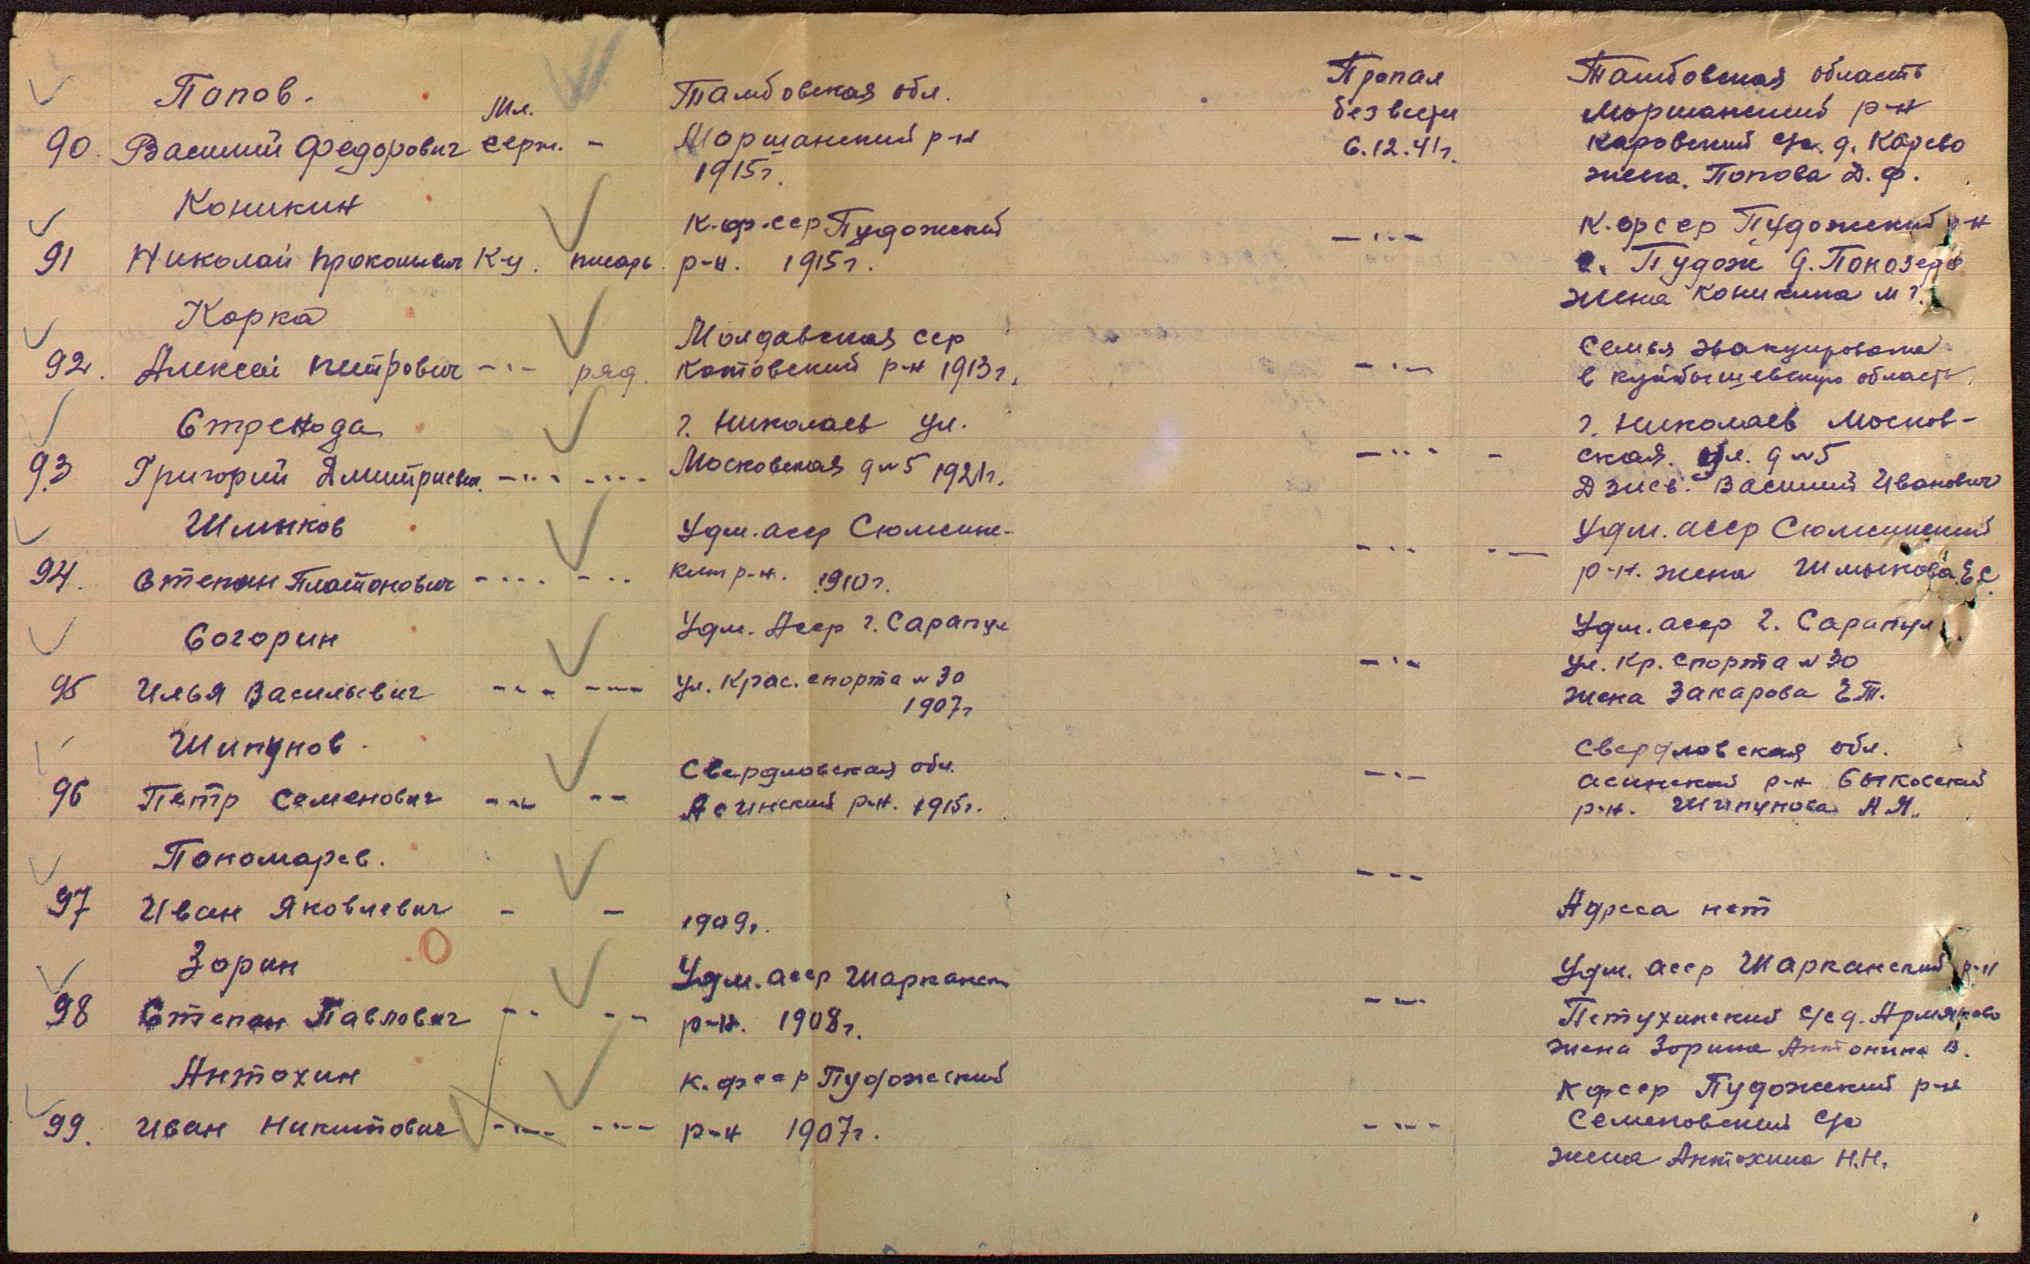 Попов.
Мл.
Тамбовская обл.
Пропал
Тамбовская область
90. Василий Федорович серж. -
Моршанский р-н
1915г.
без вести
6.12.41г.
Моршанский р-н
Каровский с/с. д. Карево
жена. Попова Д.Ф.
Коникин
91 Николай Прокопьевич К-ц. писарь.
К.ф.ССР Пудожский
р-н. 1915г.
-··-
К.ФССР Пудожский р-н
с. Пудож д.
жена Коникина М Г.
Корка
92. Алексей Петрович -·- ряд.
Молдавская ССР
Котовский р-н 1913г.
-··-
Семья эвакуирована
в Куйбышевскую область.
Стренода
93 Григорий Дмитриевич. -··- -···-
г. Николаев ул.
Московская д №5 1921г.
-··· -
г. Николаев Москов-
ская. ул. д №5
Василий Иванович
Шмыков
94. Степан Платонович -··· -··
Удм. АССР Сюмсин-
р-н. 1910г.
-·· ·-
Удм. АССР Сюмсинский
р-н. жена Шмыкова Е.С.
Согорин
95 Илья Васильевич -·- -··-
Удм. АССР г. Сарапул
ул. Крас. спорта №30
1907г
-·-
Удм. АССР г. Сарапул
ул. Кр. Спорта №30
жена Захарова Е.Т.
Шипунов.
96 Петр Семенович -·- --
Свердловская обл.
Ачинский р-н. 1915г.
-··-
Свердловская обл.
р-н
р-н. Шипунова А.Я.
Пономарев.
97 Иван Яковлевич - -
1909г.
-·--
Адреса нет
Зорин
98 Степан Павлович -· --
Удм. АССР Шарканск
р-н. 1908г.
-·-
Удм. АССР Шарканский р-н
Петухинский с/с д.
жена Зорина Антонина В.
Антохин
99. Иван Никитович -··- -·--
К.ФССР Пудожский
р-н 1907г.
-··-
КФССР Пудожский р-н
Семеновский с/с
жена Антохина Н.Н.